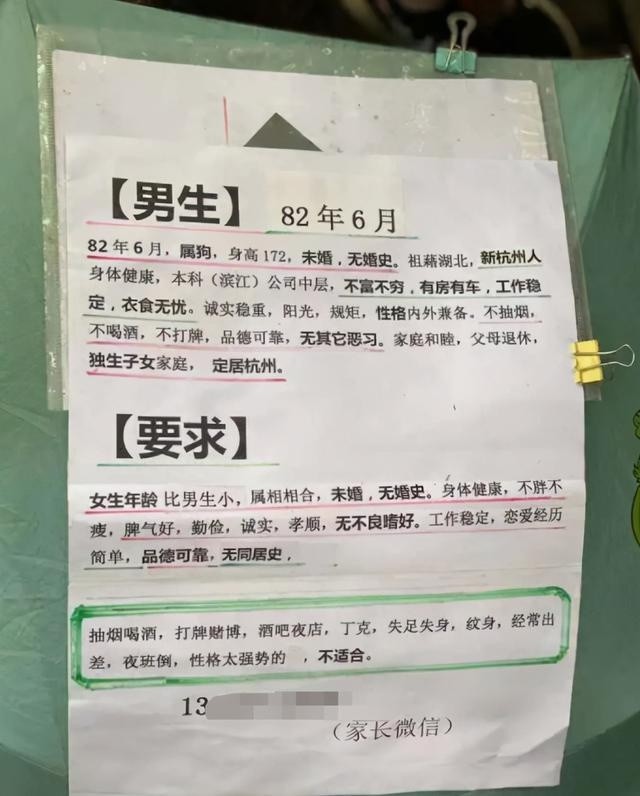 【男生】 82年6月
82年6月，属狗，身高172，未婚，无婚史。祖籍湖北，新杭州人
身体健康，本科（滨江）公司中层，不富不穷，有房有车，工作稳
定，衣食无忧。诚实稳重，阳光，规矩，性格内外兼备。不抽烟，
不喝酒，不打牌，品德可靠，无其它恶习。家庭和睦，父母退休，
独生子女家庭， 定居杭州。
【要求】
女生年龄 比男生小，属相相合，未婚，无婚史。身体健康，不胖不
瘦，脾气好，勤俭，诚实，孝顺，无不良嗜好。工作稳定，恋爱经历
简单，品德可靠，无同居史，
抽烟喝酒，打牌赌博，酒吧夜店，丁克，失足失身，纹身，经常出
差，夜班倒，性格太强势的 ，不适合。
13
（家长微信）